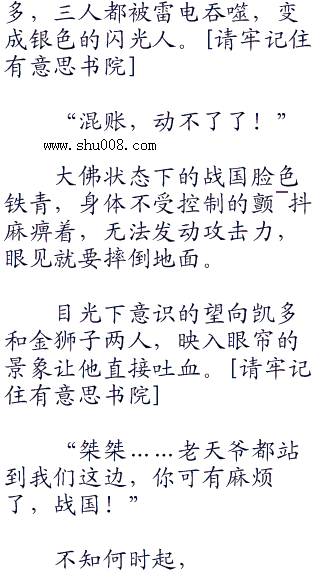 多，三人都被雷电吞噬，变
成银色的闪光人。[请牢记住
有意思书院]
“混账，动不了了！”
www.shu008.com
大佛状态下的战国脸色
铁青，身体不受控制的颤¯抖
麻痹着，无法发动攻击力，
眼见就要摔倒地面。
目光下意识的望向凯多
和金狮子两人，映入眼帘的
景象让他直接吐血。[请牢记
住有意思书院]
“桀桀……老天爷都站
到我们这边，你可有麻烦
了，战国！”
不知何时起，